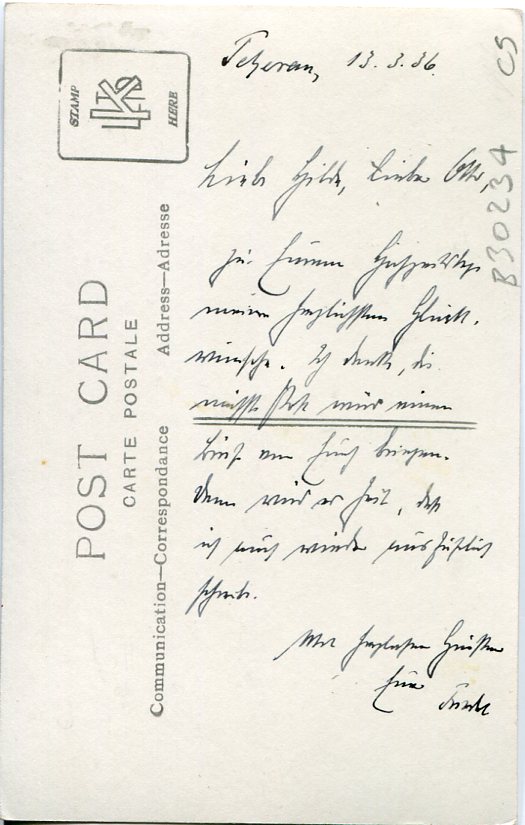 Teheran, 13.3.36.
Liebe Hilde, Lieber Otto,
zu Eurem Hochzeitstage
meine herzlichsten Glück-
wünsche. Ich denke, die
nächste Post wird einen
Brief von Euch bringen.
Dann wird es Zeit, daß
ich auch wieder ausführlich
schreibe.
Mit herzlichen Grüßen
Euer
B30234 CS
STAMP
HERE
POST CARD
CARTE POSTALE
Communication—Correspondance Address—Adresse